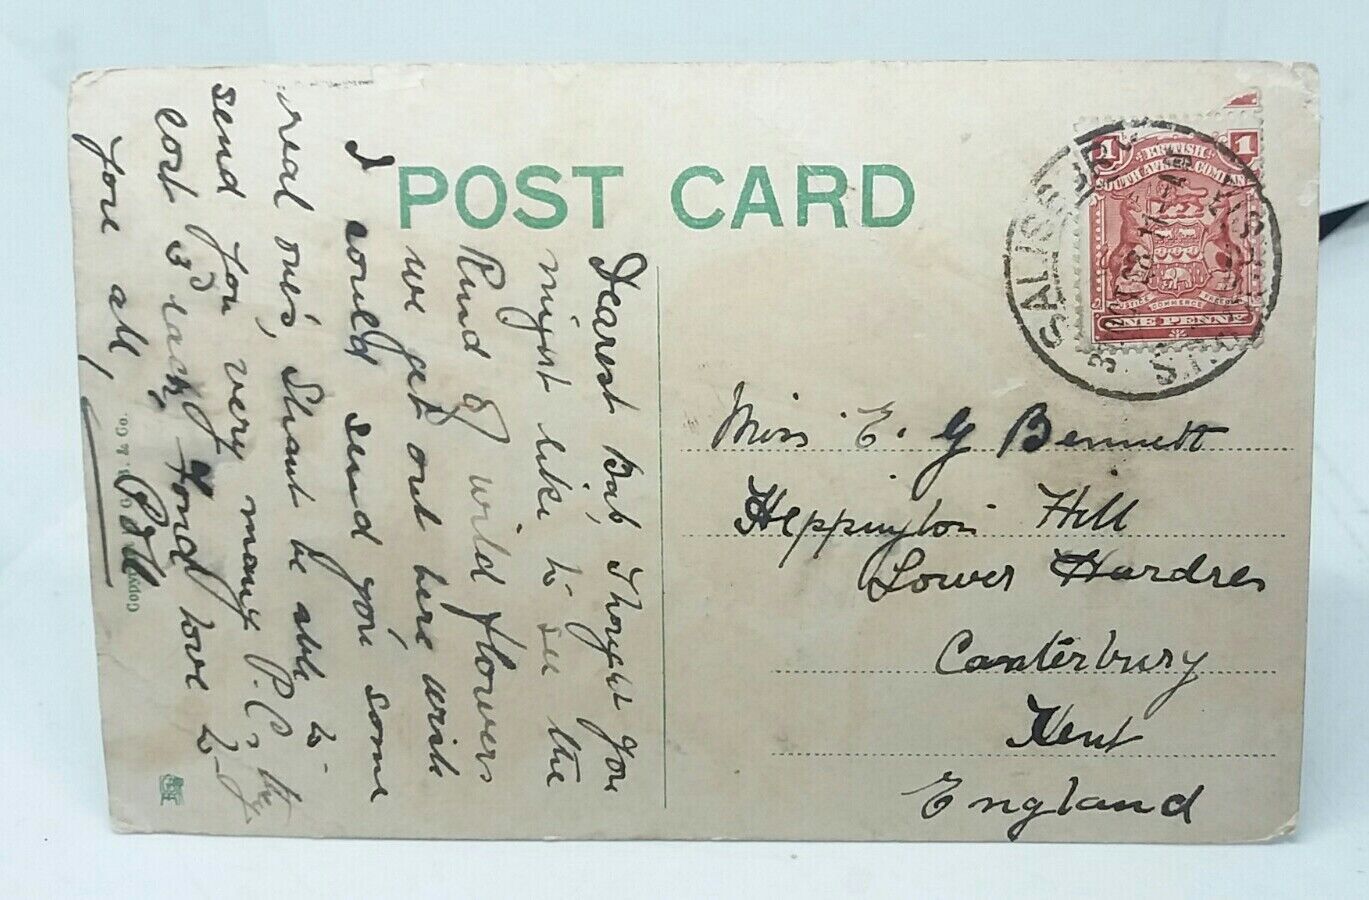 POST CARD
Dearest Bab, Thought you
might like to see the
Kind of wild flowers
we get out here, wish
I could send you some
real ones, Shant be able to
send you very many P.C,s they
cost 3d each, Fond love to
you all,
1 1
BRITISH
SOUTH AFRICA COMPANY
JUSTICE COMMERCE FREEDOM
ONE PENNY
SALISBURY
Miss E. G Bennett
Heppington Hill
Lower Hardres
Canterbury
Kent
England